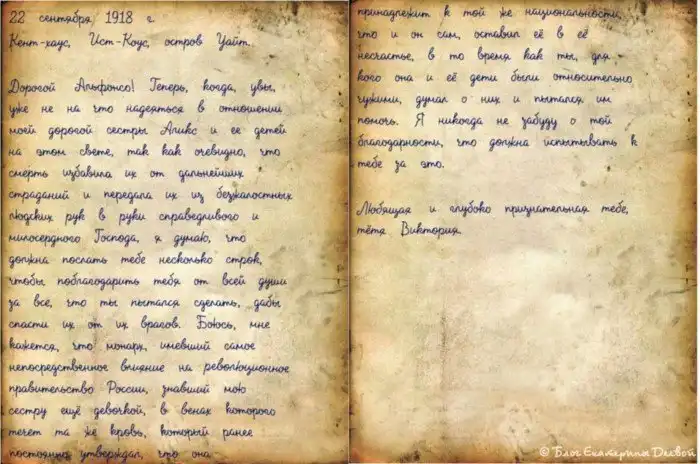 22 сентября 1918 г.
Кент-хаус, Ист-Коус, остров Уайт.
Дорогой Альфонсо! Теперь, когда, увы,
уже не на что надеяться в отношении
моей дорогой сестры Аликс и ее детей
на этом свете, так как очевидно, что
смерть избавила их от дальнейших
страданий и передала их из безжалостных
людских рук в руки справедливого и
милосердного Господа, я думаю, что
должна послать тебе несколько строк,
чтобы поблагодарить тебя от всей души
за все, что ты пытался сделать, дабы
спасти их от их врагов. Боюсь, мне
кажется, что монарх, имевший самое
непосредственное влияние на революционное
правительство России, знавший мою
сестру ещё девочкой, в венах которого
течет та же кровь, который ранее
постоянно утверждал, что она
принадлежит к той же национальности,
что и он сам, оставил её в её
несчастье, в то время как ты, для
кого она и её дети были относительно
чужими, думал о них и пытался им
помочь. Я никогда не забуду о той
благодарности, что должна испытывать к
тебе за это.
Любящая и глубоко признательная тебе,
тётя Виктория.
© Блог Екатерины Деевой